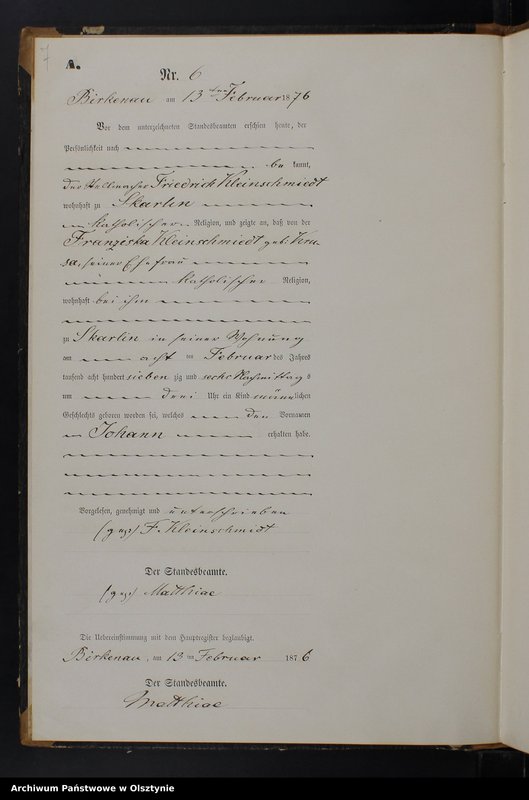 7
A.
Nr. 6
Birkenau am 13ten Februar 1876
Vor dem unterzeichneten Standesbeamten erschien heute, der
Persönlichkeit nach
be kannt,
der Friedrich Kleinschmiedt
wohnhaft zu Skarlin
katholischer Religion, und zeigte an, daß von der
Franziska Kleinschmiedt geb. Kru-
sa, seiner Ehefrau
katholischer Religion,
wohnhaft bei ihm
zu Skarlin in seiner Wohnung
am acht ten Februar des Jahres
tausend acht hundert sieben zig und sechs Nachmittags
um drei Uhr ein Kind männlichen
Geschlechts geboren worden sei, welches den Vornamen
Johann erhalten habe.
Vorgelesen, genehmigt und unterschrieben
(gez) F. Kleinschmidt
Der Standesbeamte.
(gez) Matthiae
Die Uebereinstimmung mit dem Hauptregister beglaubigt.
Birkenau, am 13 ten Februar 1876
Der Standesbeamte.
Matthiae
Archiwum Państwowe w Olsztynie